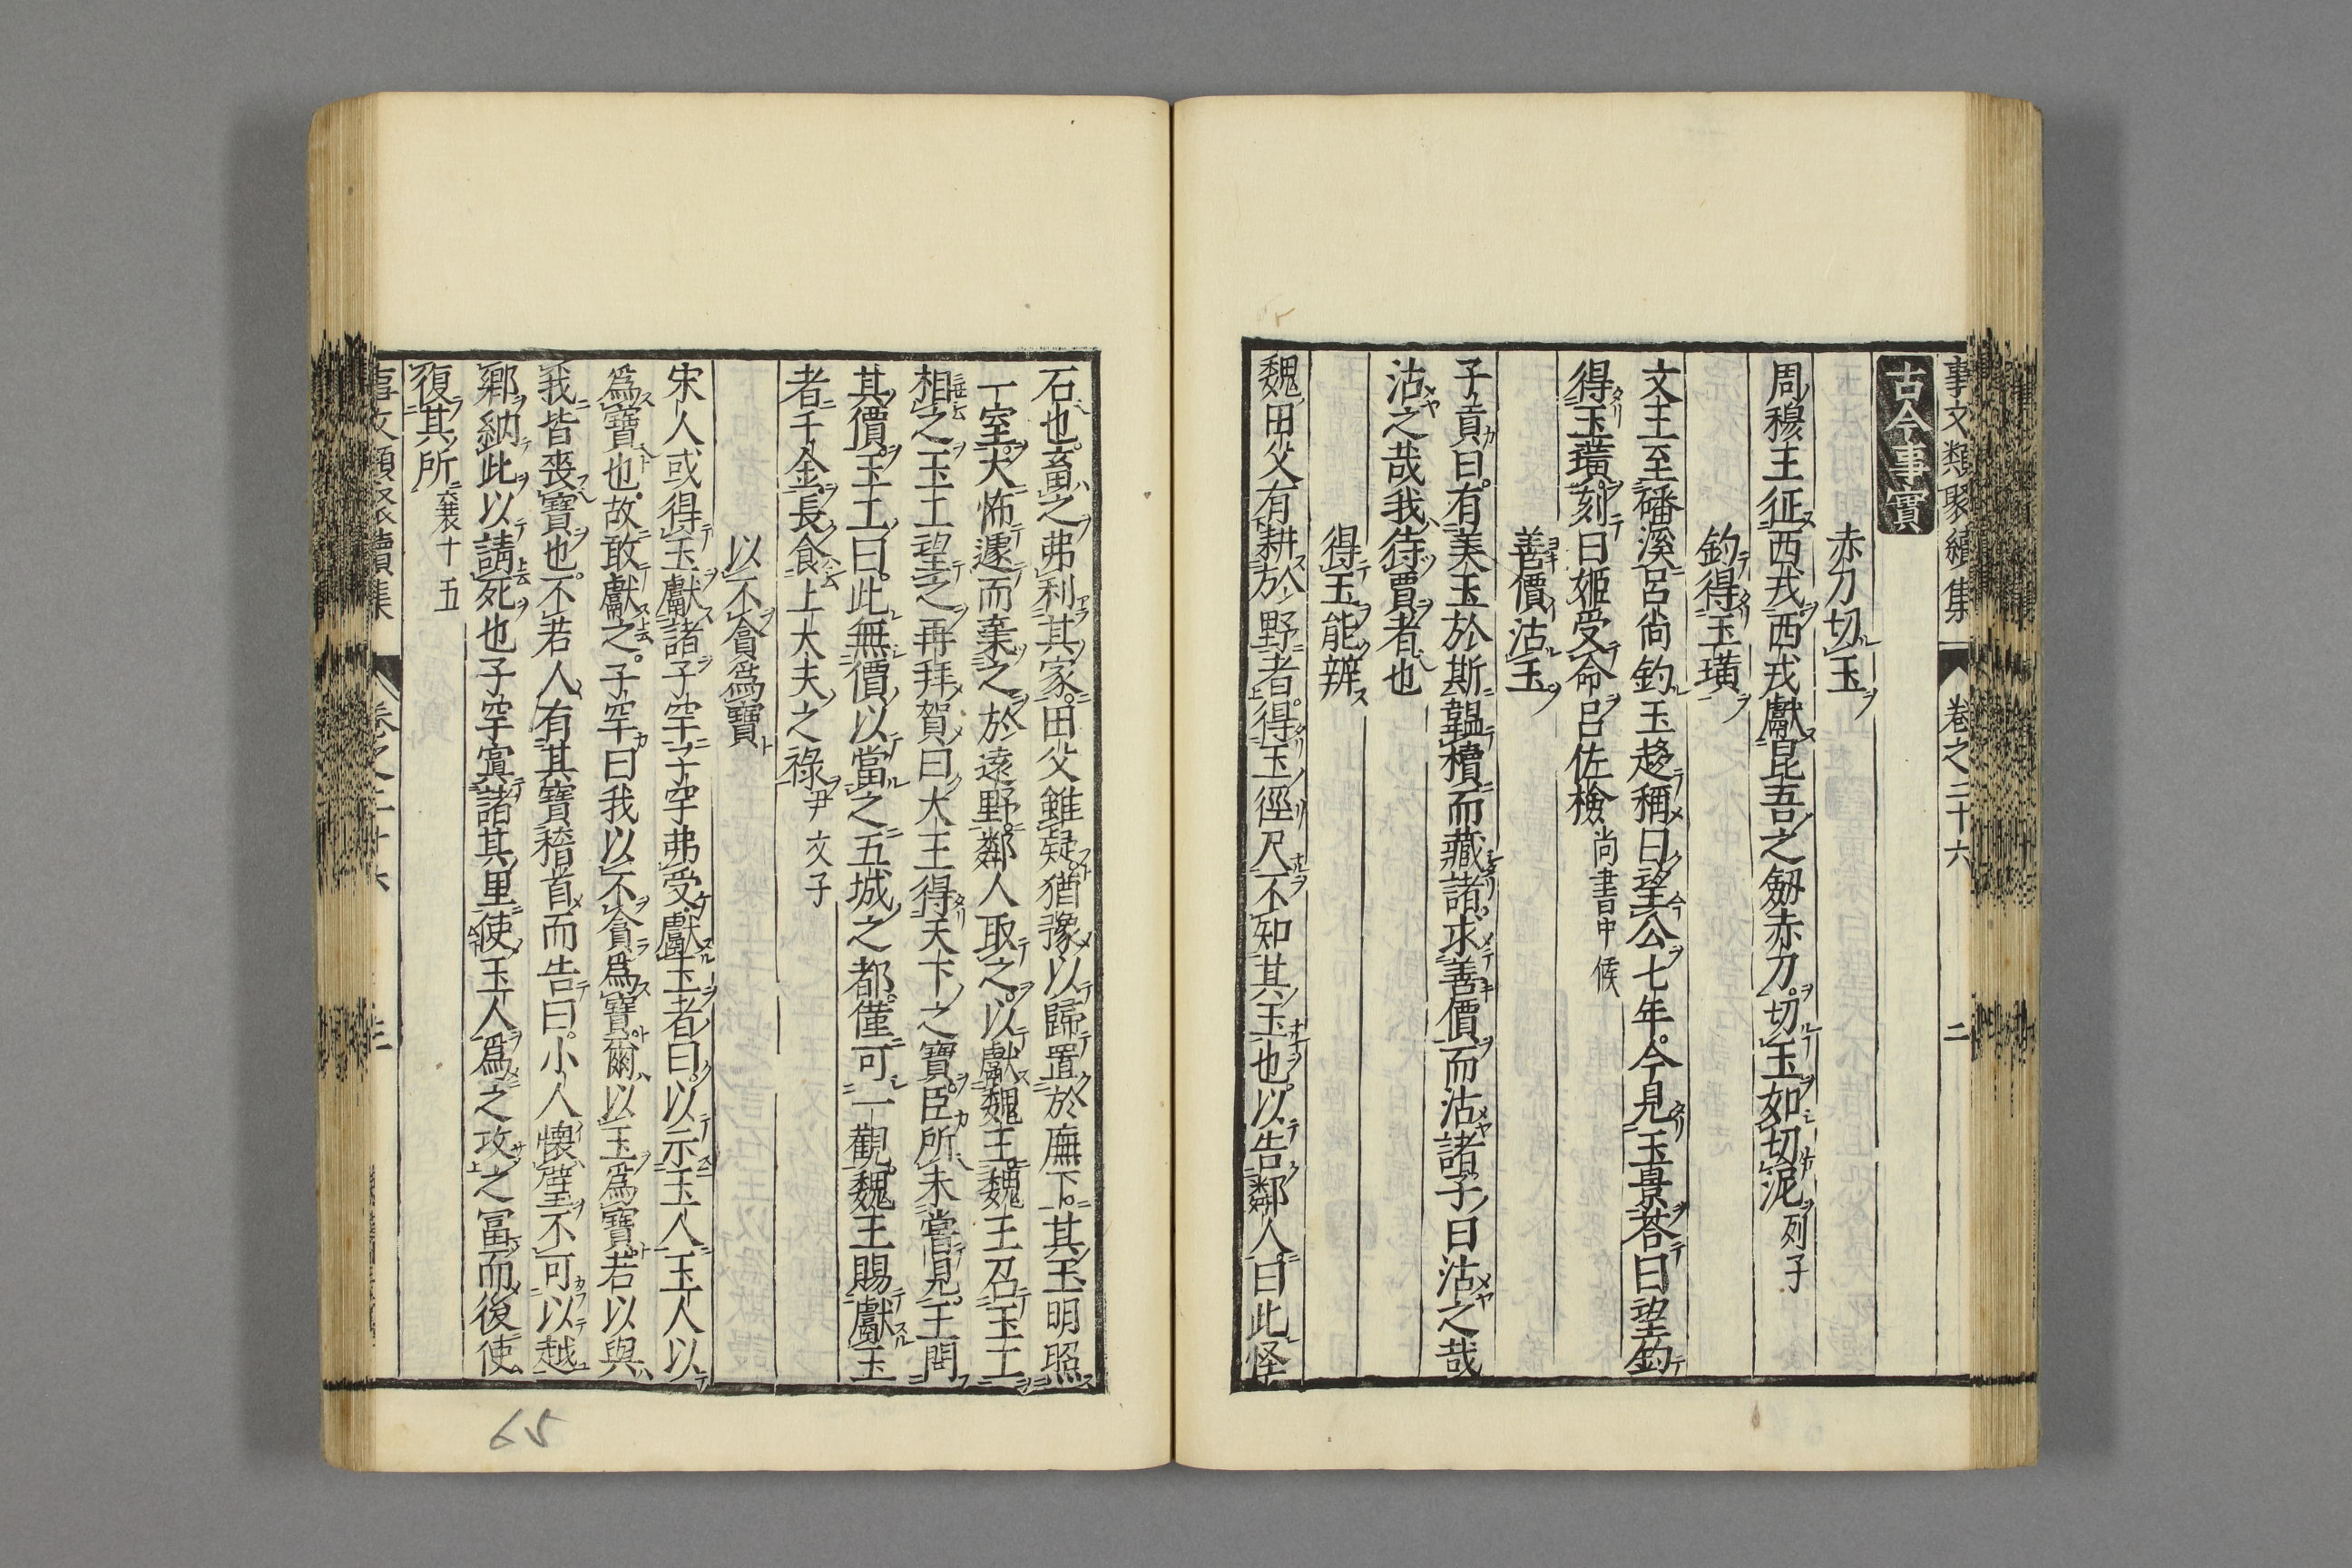 事文類聚續集 卷之二十六 二
古今事實
赤刀切玉
周穆王征西戎西戎獻昆吾之劔赤刀切玉如切泥列子
釣得玉璜
文王至磻溪呂尚釣玉趍稱曰望公七年今見玉景荅曰望釣
得玉璜刻曰姬受命呂佐檢尚書中候
善價沽玉
子貢曰有美玉於斯韞櫝而藏諸求善價而沽諸子曰沽之哉
沽之哉我待賈者也
得玉能辨
魏田父有耕於野者得玉徑尺不知其玉也以告鄰人曰此怪
石也畜之弗利其家田父雖疑猶豫以歸置於廡下其玉明照
一室大怖遽而棄之於遠野鄰人取之以獻魏王魏王召玉工
相之玉工望之再拜賀曰大王得天下之寶臣所未嘗見王問
其價玉工曰此無價以當之五城之都僅可一觀魏王賜獻玉
者千金長食上大夫之祿尹文子
以不貪爲寶
宋人或得玉獻諸子罕子罕弗受獻玉者曰以示玉人玉人以
爲寶也故敢獻之子罕曰我以不貪爲寶爾以玉爲寶若以與
我皆喪寶也不若人有其寶稽首而告曰小人懷璧不可以越
鄉納此以請死也子罕寘諸其里使玉人爲之攻之冨而後使
復其所襄十五
事文類聚續集 卷之二十六
65